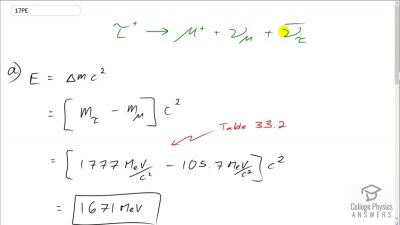 17PE
τ⁺ → μ⁺ + ν_μ + ν̄_τ
a) E = Δmc²
= [m_τ − m_μ] c²
Table 33.2
= [1777 MeV/c² − 105.7 MeV/c²] c²
= 1671 MeV
College Physics
ANSWERS